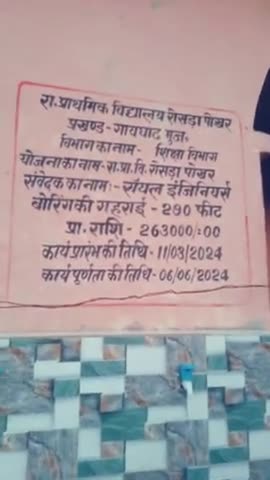 रा.प्राथमिक विद्यालय रोसड़ा पोखर
प्रखण्ड - गायघाट मुज॰
विभाग का नाम - शिक्षा विभाग
योजना का नाम - रा.प्रा.वि. रोसड़ा पोखर
संवेदक का नामः - रॉयल इंजिनियर्स
बोरिंग की गहराई - 290 फीट
प्रा. राशि - 263000/:00
कार्य प्रारंभ की तिथि - 11/03/2024
कार्य पूर्णता की तिथि - 06/06/2024